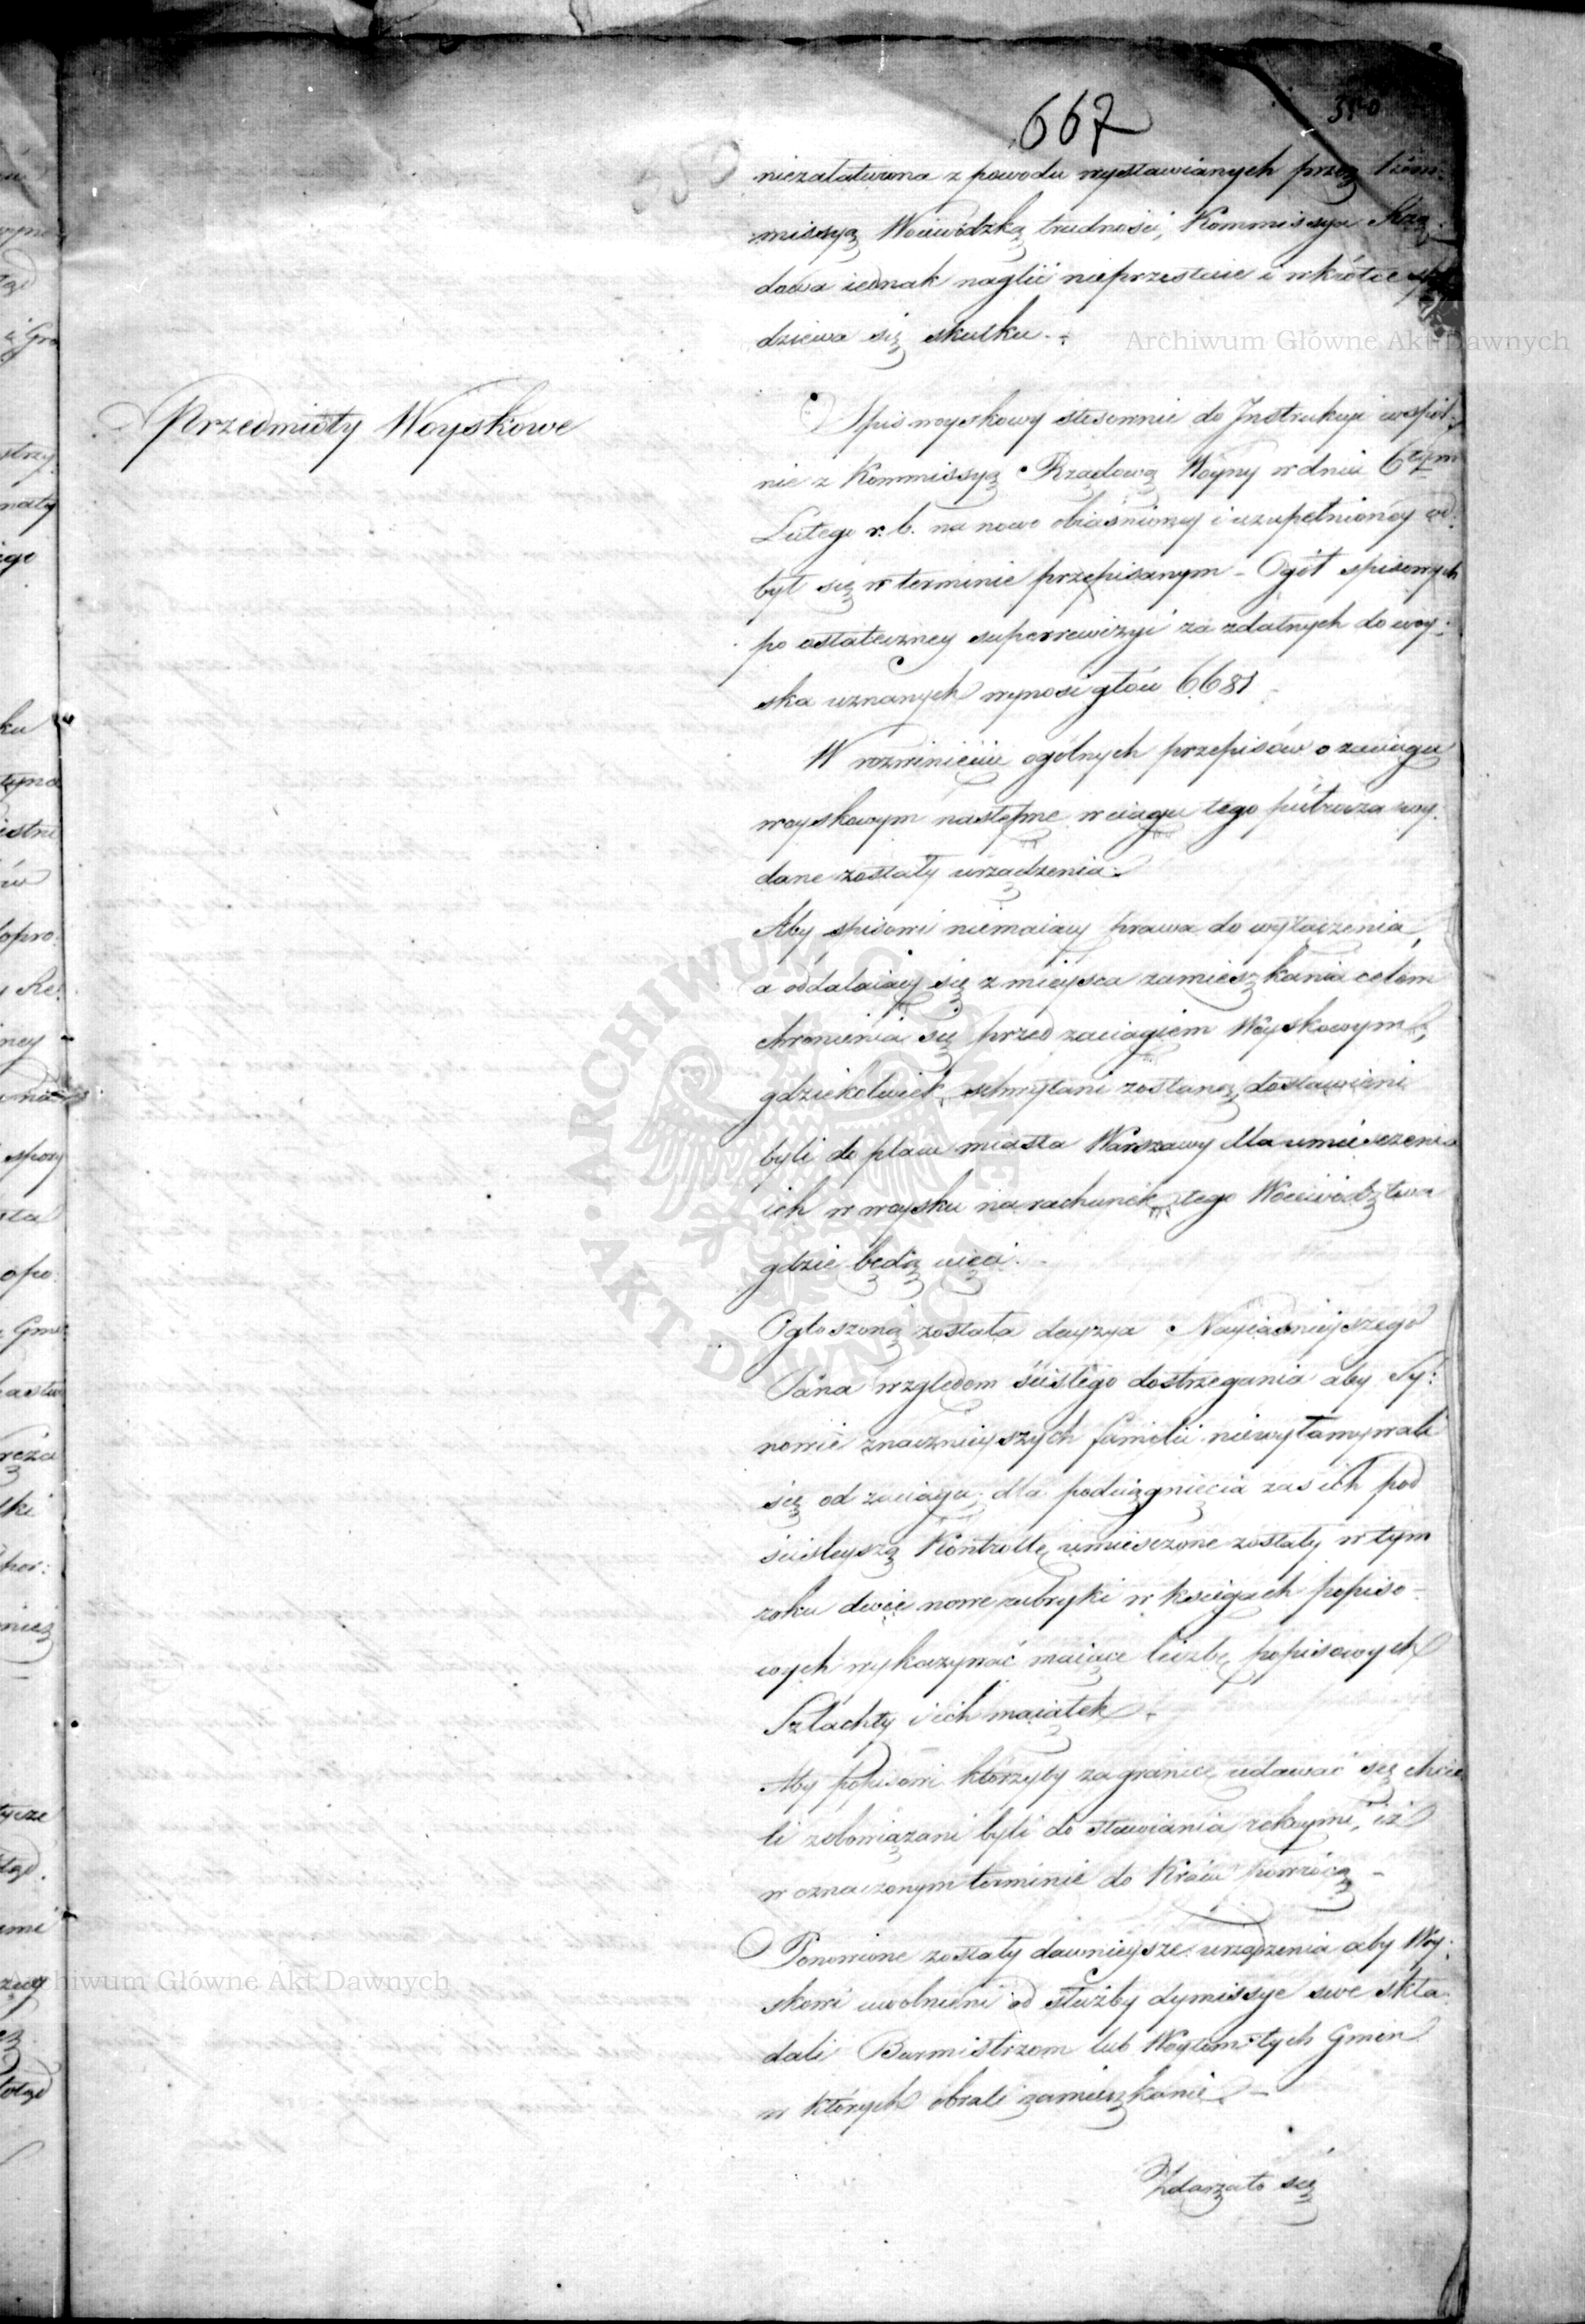 667
380
niezałatwiona z powodu wystawianych przez Kom:
missyą Woiewódzką trudności, Kommissya Rzą:
dowa iednak naglić nieprzestaie i wkrótce spo
dziewa się skutku.
Przedmioty Woyskowe
Spis woyskowy stosownie do Instrukcyi wspól:
nie z Kommissyą Rządową Woyny w dniu 6tym
Lutego r. b. na nowo obiaśnioney i uzupełnioney od:
był się w terminie przepisanym - Ogół spisowych
po ostateczney superrewizyi za zdatnych do woy:
ska uznanych wynosi głów 6681
W rozwinięciu ogólnych przepisów o zaciągu
woyskowym następne w ciągu tego półrocza wy:
dane zostały urządzenia.
Aby spisowi niemaiący prawa do wyłączenia,
a oddalaiący się z mieysca zamieszkania celem
chronienia się przed zaciągiem Woyskowym,
gdziekolwiek schwytani zostaną, dostawieni
byli do placu miasta Warszawy dla umieszczenia
ich w woysku na rachunek tego Woiewództwa
gdzie będą uięci.
Ogłoszoną została decyzya Nayiaśnieyszego
Pana względem ścisłego dostrzegania aby Sy:
nowie znacznieyszych familii niewyłamywali
się od zaciągu; dla podciągnięcia zaś ich pod
ściśleyszą Kontrollę umieszczone zostały w tym
roku dwie nowe rubryki w księgach popiso-
wych wykazywać maiące liczbę popisowych
Szlachty i ich maiątek.
Aby popisowi którzyby zagranicę udawać się chcie
li zobowiązani byli do stawiania rękoymi, iż
w oznaczonym terminie do Kraiu powrócą -
Ponowione zostały dawnieysze urządzenia aby Woy:
skowi uwolnieni od służby dymissye swe skła:
dali Burmistrzom lub Woytom tych Gmin
w których obrali zamieszkanie -
Zdarzało się
Archiwum Główne Akt Dawnych
Archiwum Główne Akt Dawnych
ARCHIWUM GŁÓWNE AKT DAWNYCH